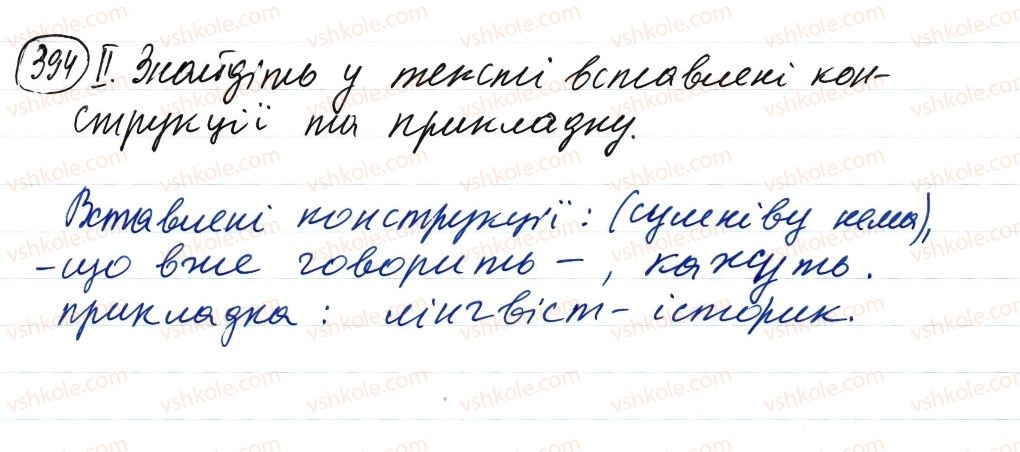 394 II. Знайдіть у тексті вставлені кон-
струкції та прикладку.
Вставлені конструкції: (сумніву нема),
- що вже говорить - , кажуть.
прикладка: лінгвіст - історик.